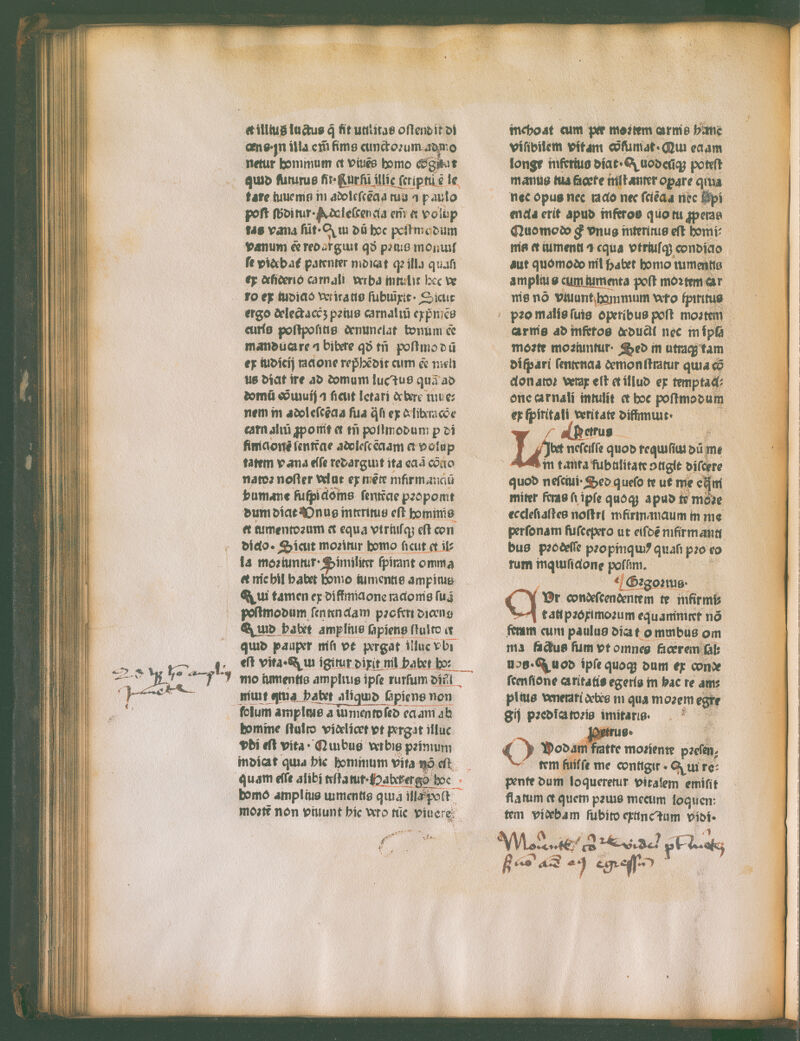 et illius luctus q̄ sit utilitas ostendit di
cens. jn illa em̄ finis cunctorum admo
netur hominum et viuēs homo cogitat
quid futurus sit. Rursū illic scriptū ē le
tare iuuenis in adolescēcia tua ⁊ paulo
post sb̄ditur. Adolescencia em̄ et volup
tas vana sūt. Qui dū hoc postmodum
vanum eē redarguit qd̄ prius monuis
se videbat̄ patenter indicat qꝫ illa quasi
ex desiderio carnali verba intulit hec ve
ro ex iudicio veritatis subiūxit. Sicut
ergo delectacōꝫ prius carnaliū exprimēs
curis postpositis denunciat bonum eē
manducare ⁊ bibere qd̄ tn̄ postmodū
ex iudicij racione rep̄hēdit cum eē meli
us dicat ire ad domum luctus quā ad
domū cōuiuij ⁊ sicut letari debere iuue
nem in adolescēcia sua q̄si ex deliberacōe
carnaliū ꝓponit et tn̄ postmodum p di
finicionē sentēcie adolescēciam et volup
tatem vana esse redarguit ita eciā cōcio
nator noster velut ex mēte infirmanciū
humane suspicionis sentēcie proponit
dum dicat Vnus interitus est hominis
et iumentorum et equa vtriusqꝫ est con
dicio. Sicut moritur homo sicut et il-
la moriuntur. Similiter spirant omnia
et nichil habet homo iumentis amplius
Qui tamen ex diffinicione racionis suā
postmodum sentenciam profert dicens
Quid habet amplius sapiens stulto et
quid pauper nisi vt pergat illuc vbi
est vita. Qui igitur dixit nil habet ho-
mo iumentis amplius ipse rursum diffi
niuit quia habet aliquid sapiens non
solum amplius a iumento sed eciam ab
homine stulto videlicet vt pergat illuc
vbi est vita. Quibus verbis primum
indicat quia hic hominum vita nō est
quam esse alibi testatur. Habet ergo hoc
homo amplius iumentis quia illa post
mortē non viuunt hic vero tūc viuere
inchoat cum per mortem carnis hanc
visibilem vitam cōsumat. Qui eciam
longe inferius dicat. Quodcūqꝫ potest
manus tua facere instanter operare quia
nec opus nec racio nec sciēcia nec sapi
encia erit apud inferos quo tu ꝓperas
Quomodo g̊ vnus interitus est homi-
nis et iumenti ⁊ equa vtriusqꝫ condicio
aut quomodo nil habet homo iumentis
amplius cum iumenta post mortem car
nis nō viuunt hominum vero spiritus
pro malis suis operibus post mortem
carnis ad inferos deducti nec in ipsa
morte moriuntur. Sed in utraqꝫ tam
dispari sentencia demonstratur quia cō
cionator verax est et illud ex temptaci-
one carnali intulit et hoc postmodum
ex spiritali veritate diffiniuit.
Petrus
LJbet nescisse quod requisiui dū me
in tanta subtilitate ɔtigit discere
quod nesciui. Sed queso te ut me equani
miter feras si ipse quoqꝫ apud te more
ecclesiastes nostri infirmancium in me
personam suscepero ut eisdē infirmanti
bus prodesse propinquiꝰ quasi pro eo
rum inquisicione possim.
Gregorius.
CVr condescendentem te infirmi-
tati proximorum equanimiter nō
feram cum paulus dicat omnibus om
nia factus sum vt omnes facerem sal-
uos. Quod ipse quoqꝫ dum ex conde
scensione caritatis egeris in hac re am-
plius venerari debes in qua morem egre
gij predicatoris imitaris.
Petrus.
QVodam fratre moriente presen-
tem fuisse me contigit. Qui re-
pente dum loqueretur vitalem emisit
flatum et quem prius mecum loquen-
tem videbam subito extinctum vidi.